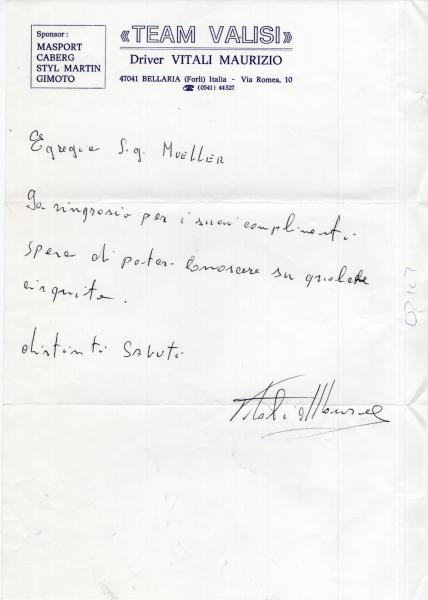 Sponsor :
MASPORT
CABERG
STYL MARTIN
GIMOTO
«TEAM VALISI»
Driver VITALI MAURIZIO
47041 BELLARIA (Forlì) Italia - Via Romea, 10
☎ (0541) 44527
Egregio Sig. MUELLER
La ringrazio per i suoi complimenti
spero di poter conoscere su qualche
circuito.
distinti saluti